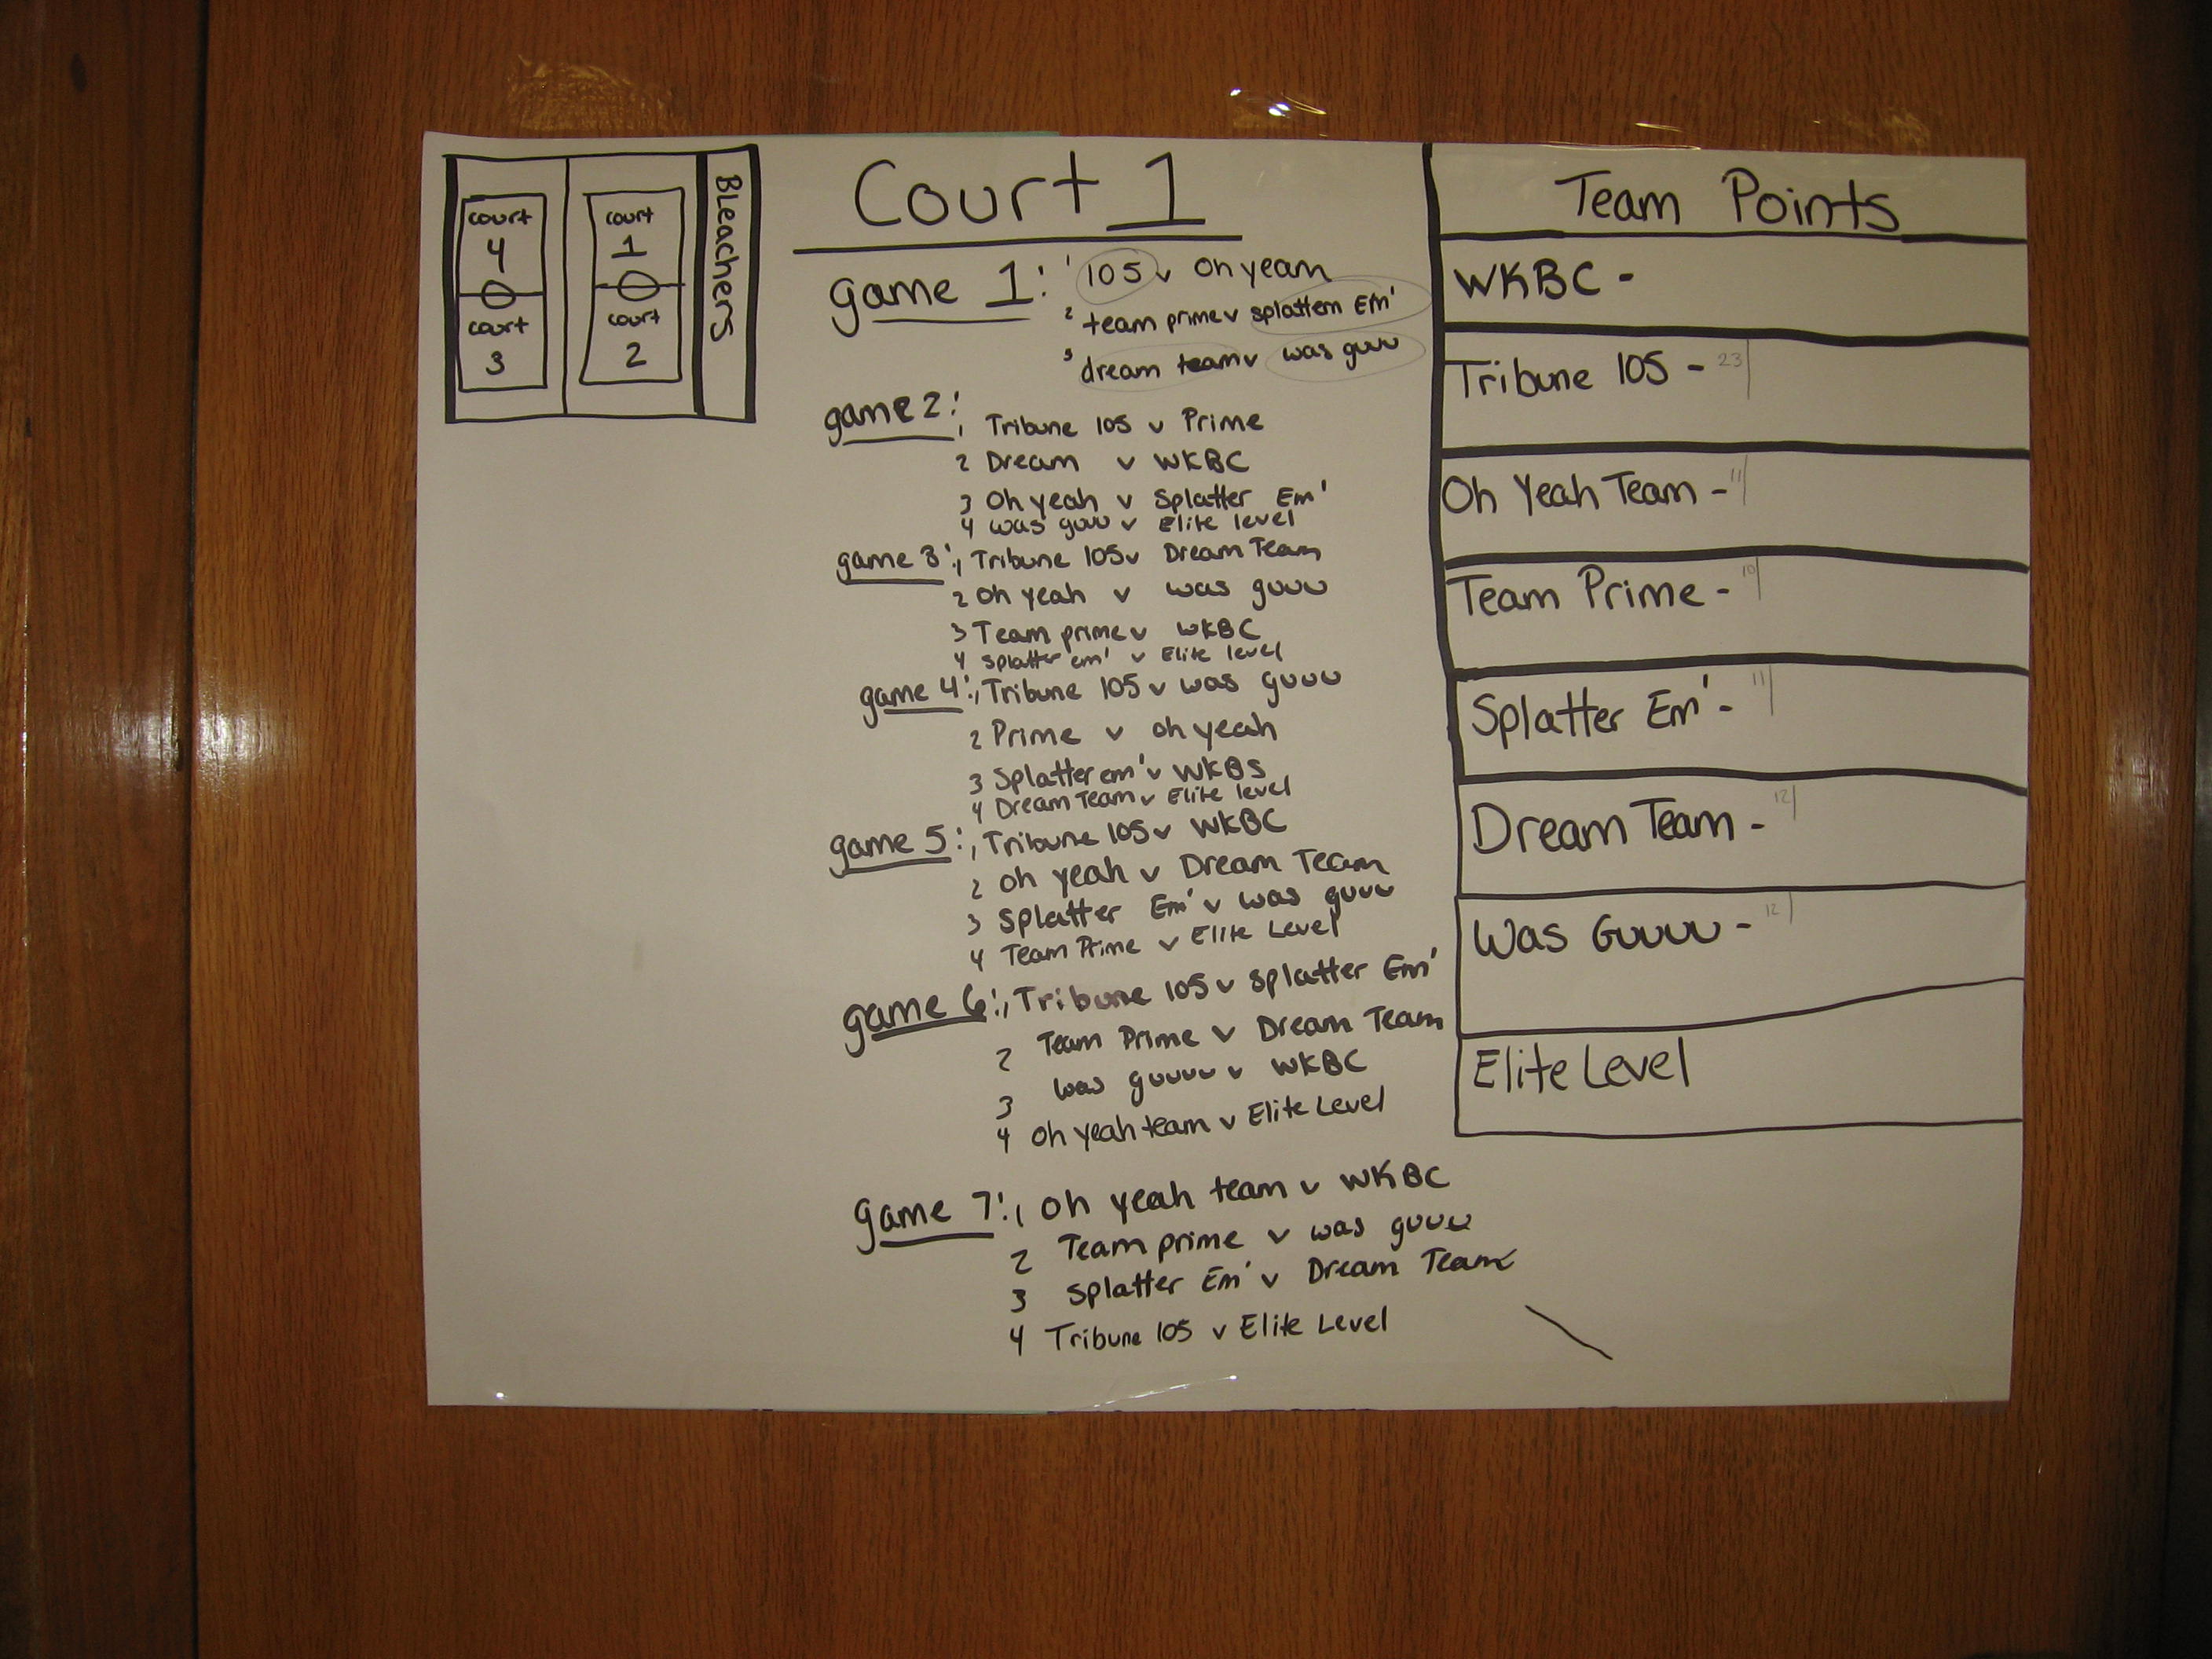 court
4
court
3
court
1
court
2
Bleachers
Court 1
game 1: 1 105 v Oh yeam
2 team prime v splattem Em'
3 dream team v was guuu
game 2:
1 Tribune 105 v Prime
2 Dream v WKBC
3 Oh yeah v Splatter Em'
4 was guuu v Elite level
game 3: 1 Tribune 105 v Dream Team
2 Oh yeah v was guuu
3 Team prime v WKBC
4 splatter em' v Elite level
game 4: 1 Tribune 105 v was guuu
2 Prime v oh yeah
3 Splatter em' v WKBS
4 Dream Team v Elite level
game 5: 1 Tribune 105 v WKBC
2 oh yeah v Dream Team
3 Splatter Em' v was guuu
4 Team Prime v Elite Level
game 6: 1 Tribune 105 v splatter Em'
2 Team Prime v Dream Team
3 was guuuu v WKBC
4 oh yeah team v Elite Level
game 7: 1 oh yeah team v WKBC
2 Team prime v was guuu
3 Splatter Em' v Dream Team
4 Tribune 105 v Elite Level
Team Points
WKBC -
Tribune 105 - 23
Oh Yeah Team - 11
Team Prime - 10
Splatter Em' - 11
Dream Team - 12
Was Guuuu - 12
Elite Level